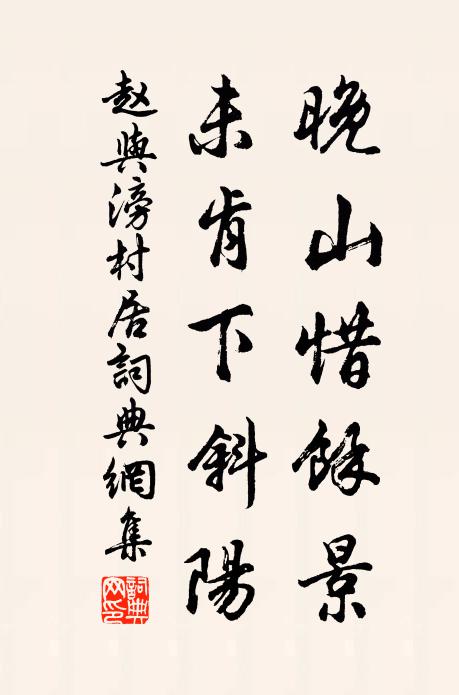 晚山惜餘景
未肯下斜陽
赵與滂村居詞典網集
詞典網印